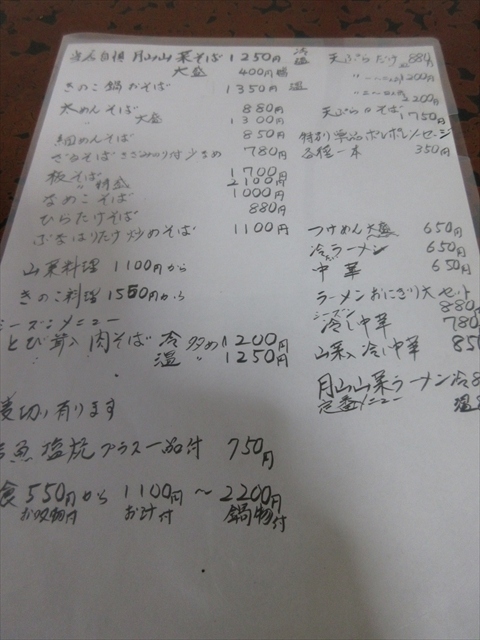 当店自慢 月山山菜そば 1250円
大盛 400円増
きのこ鍋おそば 1350円 温
太めんそば 880円
〃 大盛 1300円
細めんそば 850円
ざるそば きざみのり付 少なめ 780円
板そば 1700円
〃 特盛 2100円
なめこそば 1000円
ひらたけそば 880円
ぶなはりたけ炒めそば 1100円
山菜料理 1100円から
きのこ料理 1550円から
シーズンメニュー
とび茸入肉そば 冷 多め 1200円
温 〃 1250円
切り有ります
魚塩焼プラス一品付 750円
食 550円から 1100円〜2200円
お吸物 お汁付 鍋物付
冷 温 天ぷらだけ 880円
1200円
2200円
天ぷらそば 1750円
特別 ソーセージ
各種一本 350円
つけめん大盛 650円
冷ラーメン 650円
中華 650円
ラーメンおにぎり大セット
880
シーズン
冷し中華 780
山菜入冷し中華 850
月山山菜ラーメン冷
定番メニュー 温